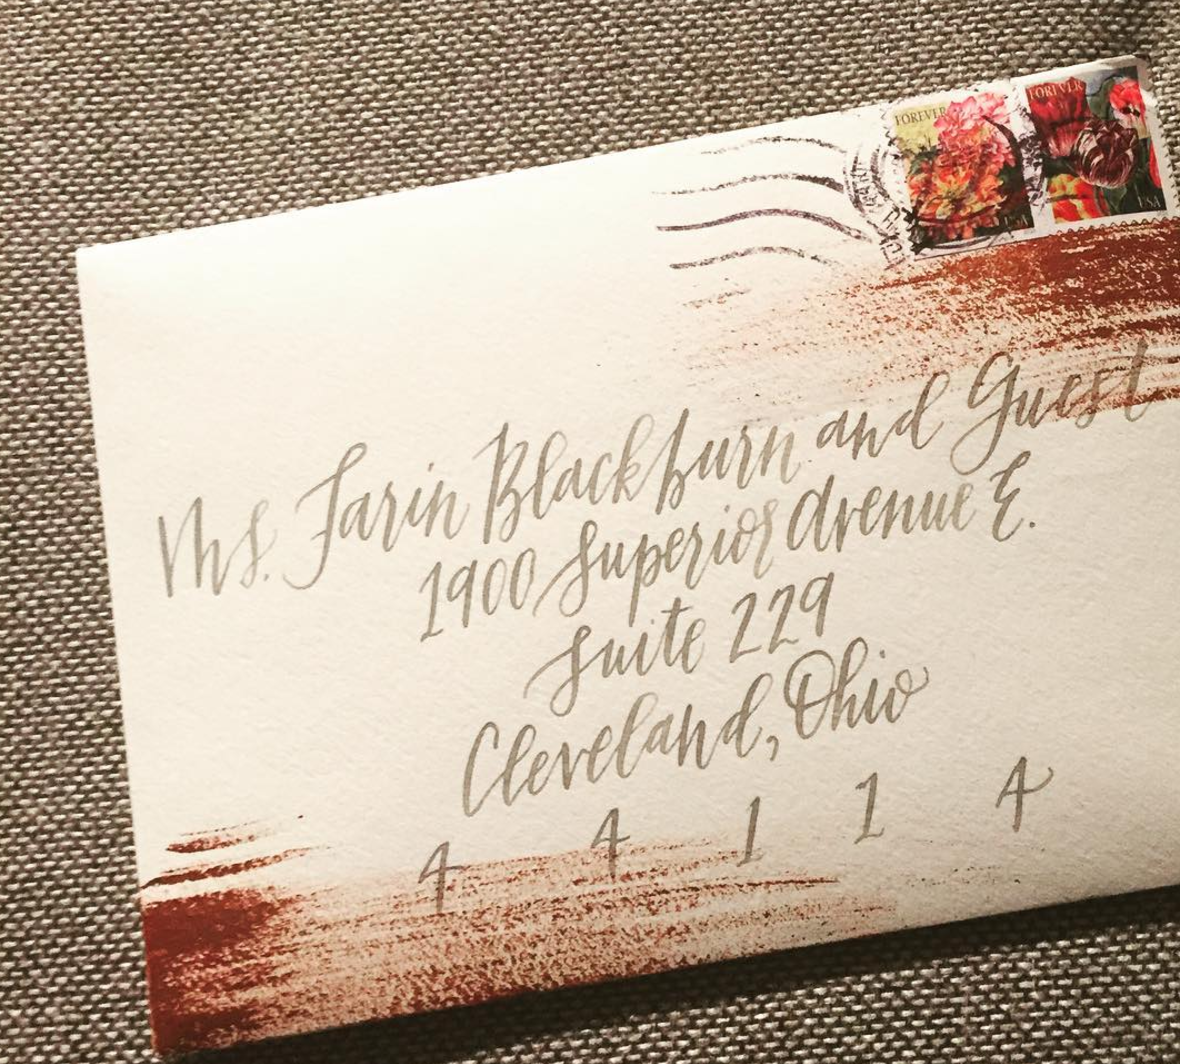 FOREVER FOREVER
USA USA
Ms. Farin Blackburn and Guest
1900 Superior Avenue E.
Suite 229
Cleveland, Ohio
4 4 1 1 4